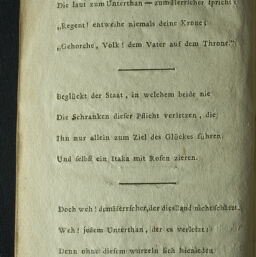 Die laut zum Unterthan — zum Herrscher spricht:
„Regent! entweihe niemals deine Krone!
„Gehorche, Volk! dem Vater auf dem Throne.“
Beglückt der Staat, in welchem beide nie
Die Schranken dieser Pflicht verletzen, die
Ihn nur allein zum Ziel des Glückes führen,
Und selbst ein Itaka mit Rosen zieren.
Doch weh! dem Herrscher, der dies Band nicht schätzt.
Weh! jedem Unterthan, der es verletzt!
Denn ohne diesem wurzeln sich hienieden